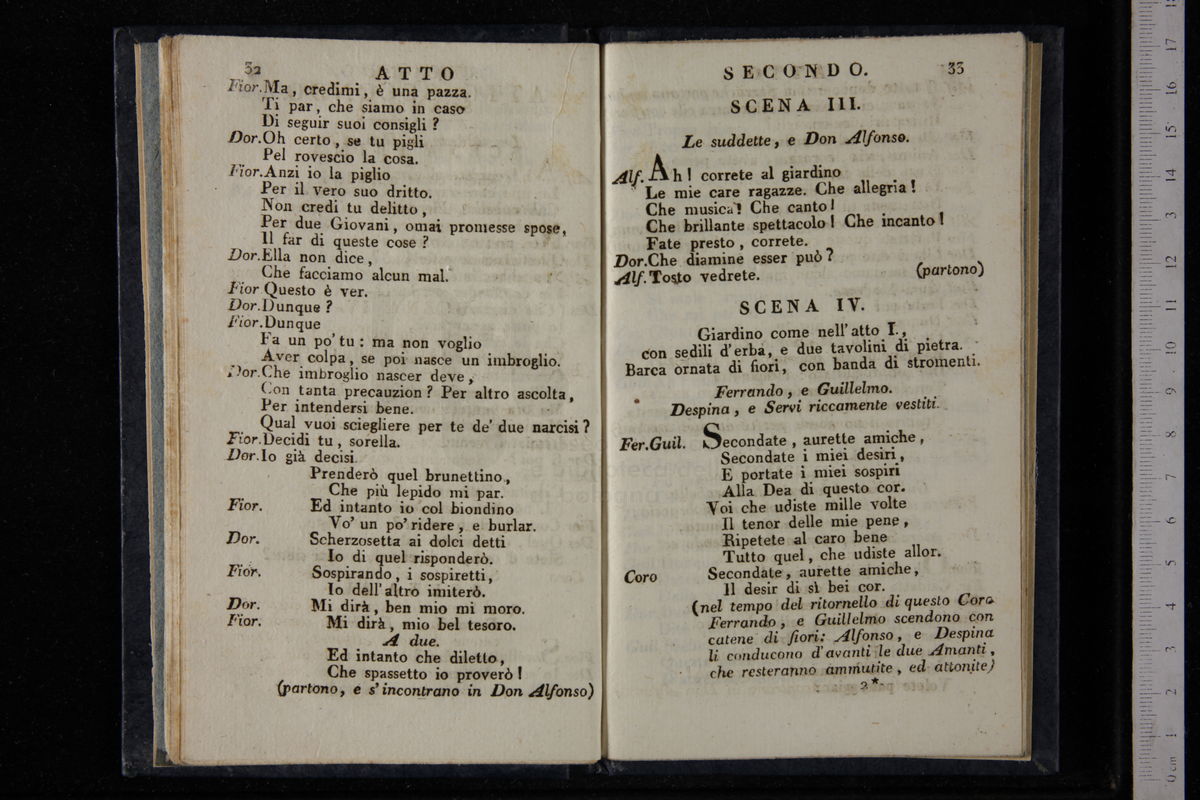 32 ATTO
Fior.Ma, credimi, è una pazza.
Ti par, che siamo in caso
Di seguir suoi consigli?
Dor.Oh certo, se tu pigli
Pel rovescio la cosa.
Fior.Anzi io la piglio
Per il vero suo dritto.
Non credi tu delitto,
Per due Giovani, omai promesse spose,
Il far di queste cose?
Dor.Ella non dice,
Che facciamo alcun mal.
Fior Questo è ver.
Dor.Dunque?
Fior.Dunque
Fa un po' tu: ma non voglio
Aver colpa, se poi nasce un imbroglio.
Dor.Che imbroglio nascer deve,
Con tanta precauzion? Per altro ascolta,
Per intendersi bene.
Qual vuoi sciegliere per te de' due narcisi?
Fior.Decidi tu, sorella.
Dor.Io già decisi.
Prenderò quel brunettino,
Che più lepido mi par.
Fior. Ed intanto io col biondino
Vo' un po' ridere, e burlar.
Dor. Scherzosetta ai dolci detti
Io di quel risponderò.
Fior. Sospirando, i sospiretti,
Io dell'altro imiterò.
Dor. Mi dirà, ben mio mi moro.
Fior. Mi dirà, mio bel tesoro.
A due.
Ed intanto che diletto,
Che spassetto io proverò!
(partono, e s'incontrano in Don Alfonso)
SECONDO. 33
SCENA III.
Le suddette, e Don Alfonso.
Alf. Ah! correte al giardino
Le mie care ragazze. Che allegria!
Che musica! Che canto!
Che brillante spettacolo! Che incanto!
Fate presto, correte.
Dor.Che diamine esser può?
Alf.Tosto vedrete. (partono)
SCENA IV.
Giardino come nell'atto I.,
con sedili d'erba, e due tavolini di pietra.
Barca ornata di fiori, con banda di stromenti.
Ferrando, e Guillelmo.
Despina, e Servi riccamente vestiti.
Fer.Guil. Secondate, aurette amiche,
Secondate i miei desiri,
E portate i miei sospiri
Alla Dea di questo cor.
Voi che udiste mille volte
Il tenor delle mie pene,
Ripetete al caro bene
Tutto quel, che udiste allor.
Coro Secondate, aurette amiche,
Il desir di sì bei cor.
(nel tempo del ritornello di questo Coro
Ferrando, e Guillelmo scendono con
catene di fiori: Alfonso, e Despina
li conducono d'avanti le due Amanti,
che resteranno ammutite, ed attonite)
2*